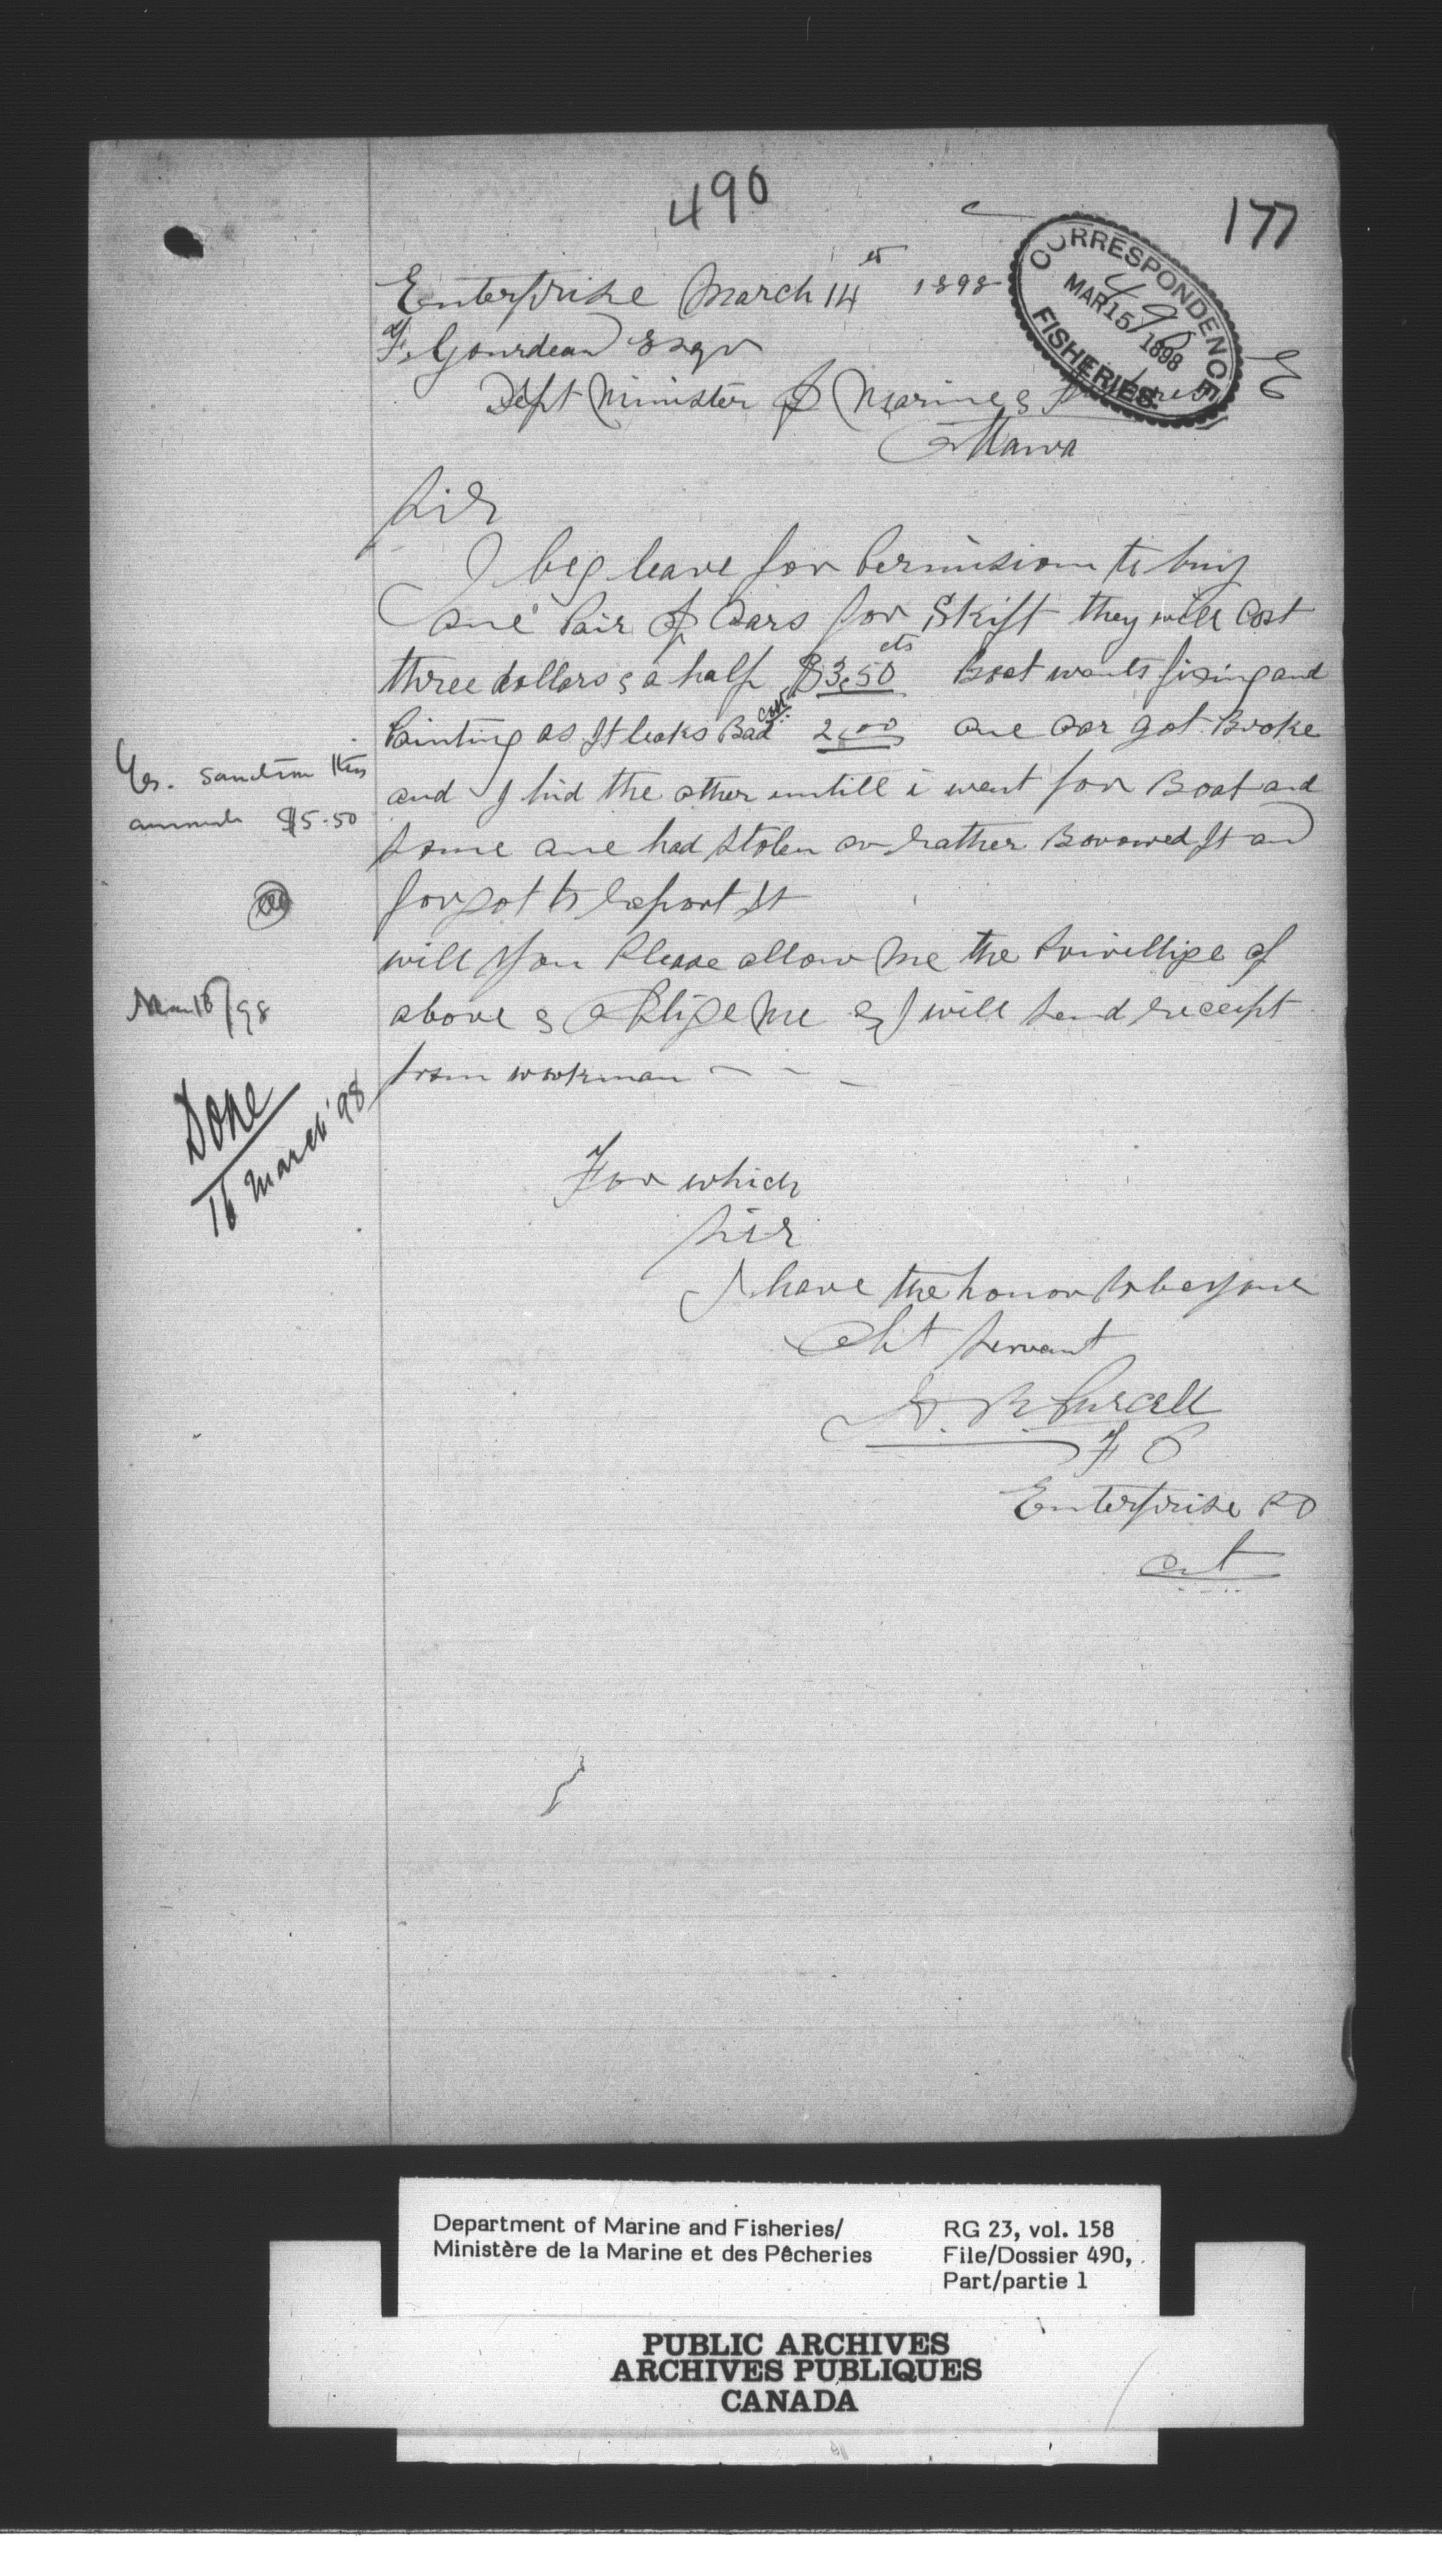 490
177
CORRESPONDENCE
490
MAR 15 1898
FISHERIES.
E
Enterprise March 14 1898
F. Gourdeau Esqr
Dept Minister of Marine & Fisheries
Ottawa
Sir
I beg leave for Permission to buy
one Pair of Oars for Skift they will cost
three dollars & a half $3.50 cts Boat wants fixing and
Painting as It leaks Bad 2.00 one oar got Broke
and I hid the other untill i went for Boat and
some one had stolen or rather Borowed It and
forgot to report It
will you Please allow me the Privellige of
above & oblige me & I will send receipt
from workman - - -
Yes. Sanction this
amount $5.50
Mar 16/98
Done
16 March '98
For which
Sir
I have the honor to be your
obt servant
H. R. Purcell
F O
Enterprise PO
Ont
Department of Marine and Fisheries/
Ministère de la Marine et des Pêcheries
RG 23, vol. 158
File/Dossier 490,
Part/partie 1
PUBLIC ARCHIVES
ARCHIVES PUBLIQUES
CANADA